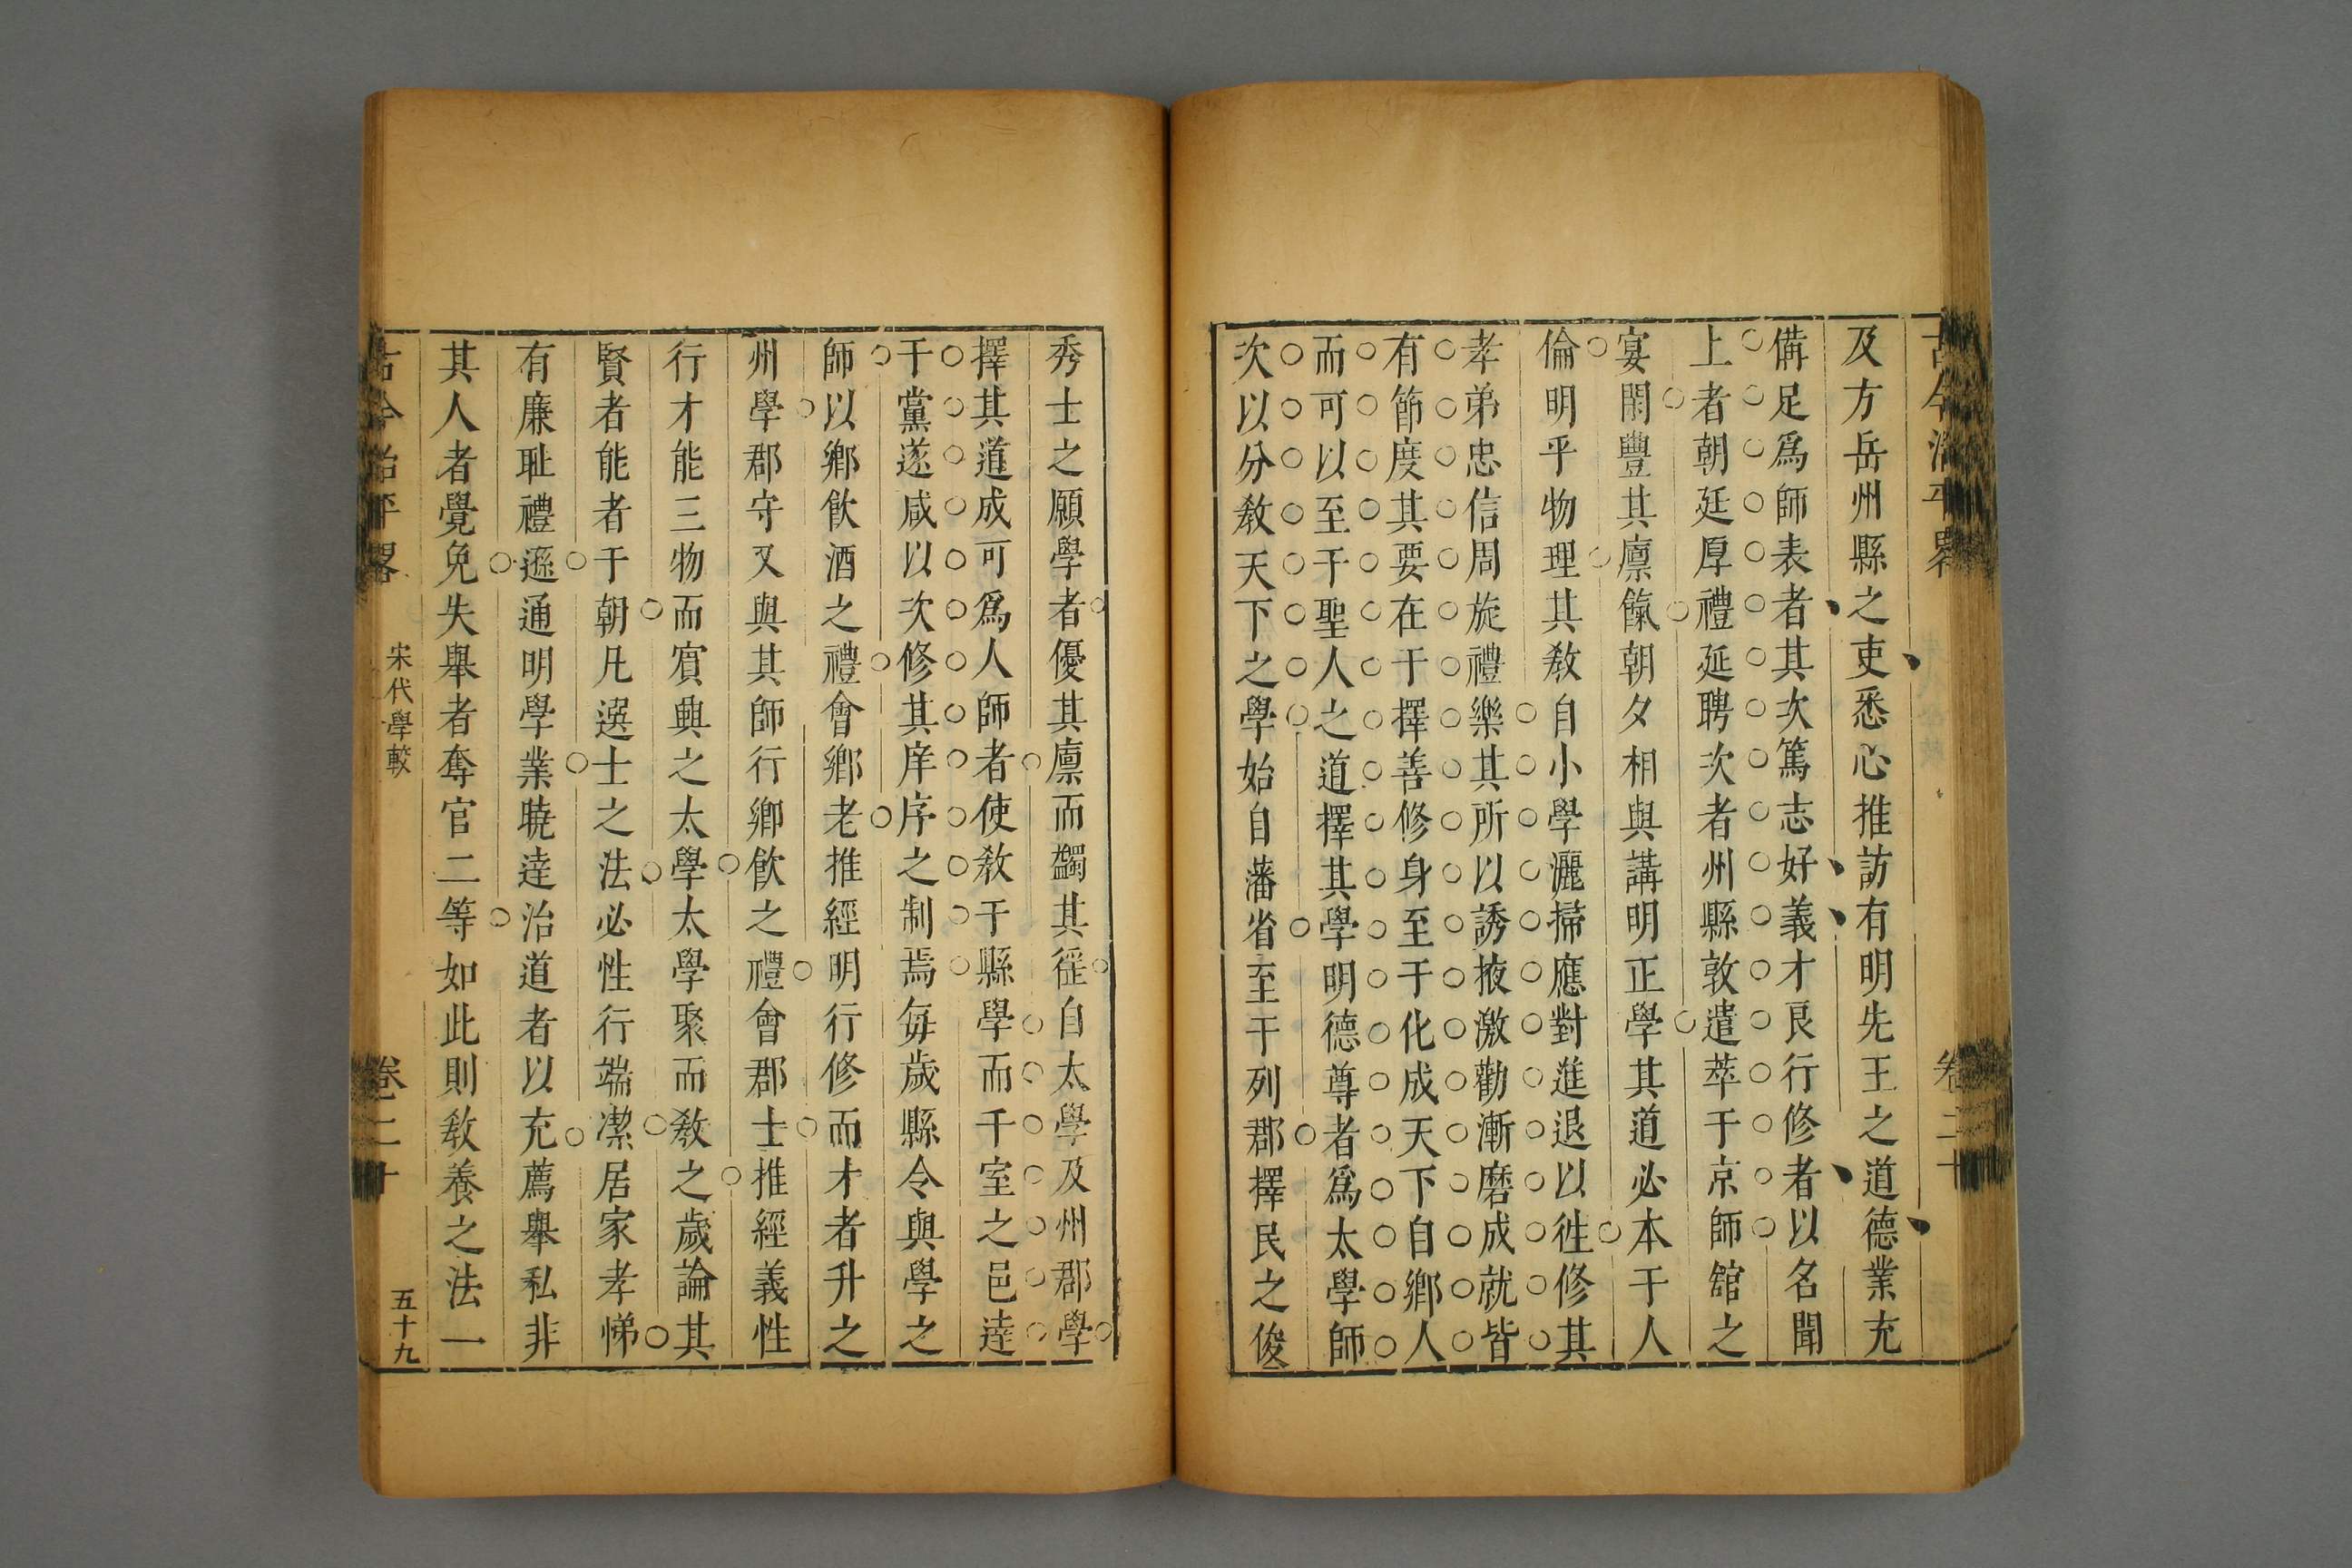 古今治平畧
卷二十
及方岳州縣之吏悉心推訪有明先王之道德業充
備足爲師表者其次篤志好義才良行修者以名聞
上者朝廷厚禮延聘次者州縣敦遣萃于京師舘之
宴閑豐其廪餼朝夕相與講明正學其道必本于人
倫明乎物理其敎自小學灑掃應對進退以徃修其
孝弟忠信周旋禮樂其所以誘掖激勸漸磨成就皆
有節度其要在于擇善修身至于化成天下自鄉人
而可以至于聖人之道擇其學明德尊者爲太學師
次以分敎天下之學始自藩省至于列郡擇民之俊
秀士之願學者優其廪而蠲其徭自太學及州郡學
擇其道成可爲人師者使敎于縣學而千室之邑逹
于黨遂咸以次修其庠序之制焉每歲縣令與學之
師以鄉飮酒之禮會鄉老推經明行修而才者升之
州學郡守又與其師行鄉飮之禮會郡士推經義性
行才能三物而賓興之太學太學聚而敎之歲論其
賢者能者于朝凡選士之法必性行端潔居家孝悌
有廉耻禮遜通明學業曉逹治道者以充薦舉私非
其人者覺免失舉者奪官二等如此則敎養之法一
古今治平畧
宋代學較
卷二十
五十九